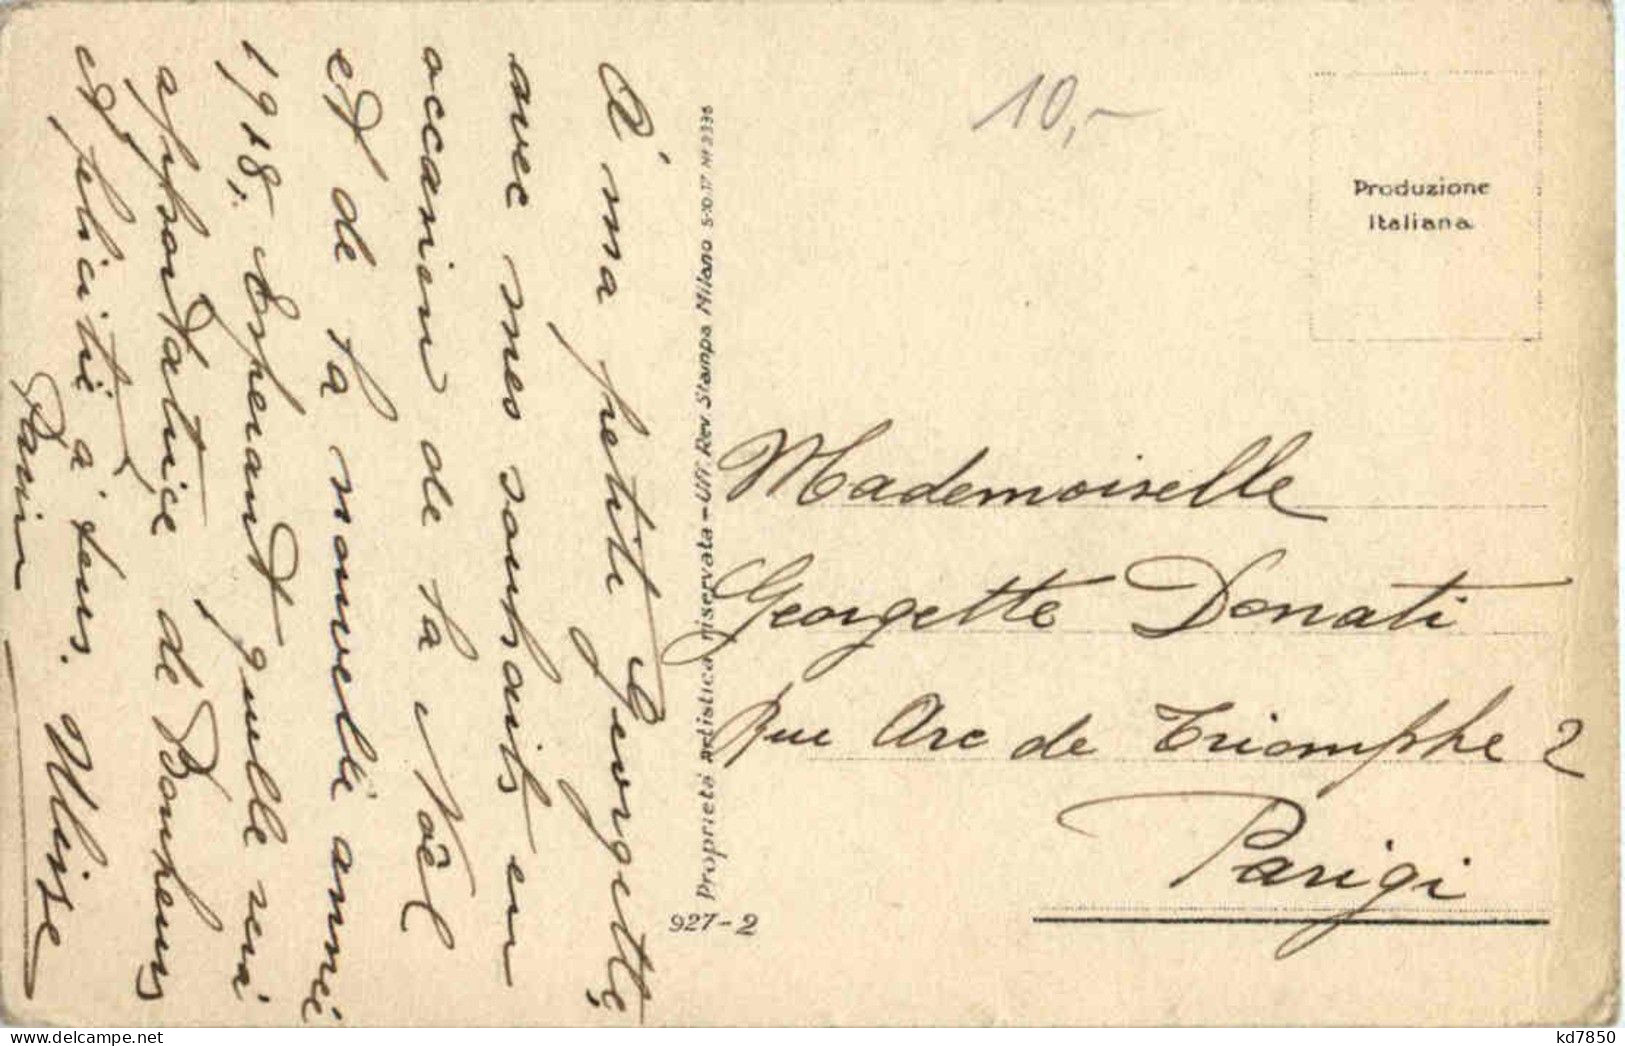 A ma petite Georgette,
avec mes souhaits en
occasion de la Noël
et de la nouvelle année
1918, Esperant quelle sera
apportatrice de Bonheurs
et félicité à tous. Ulisse
10,-
Produzione
Italiana
Proprietà artistica riservata - Uff. Rev. Stampa Milano 5-10-17 Nº 3336
927-2
Mademoiselle
Georgette Donati
Rue Arc de Triomphe 2
Parigi
kd7850